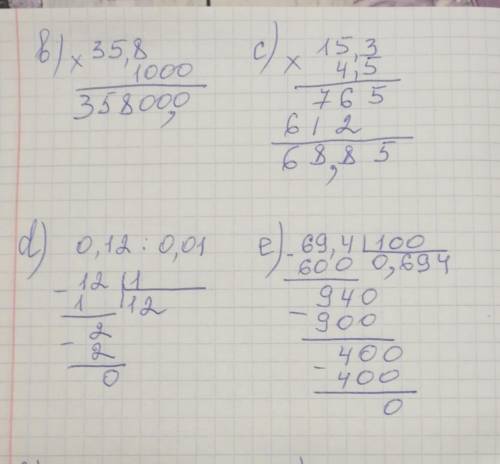 b) × 35,8
1000
358000,
c) × 15,3
4,5
765
612
68,85
d) 0,12 : 0,01
- 12 | 1
1 12
- 2
2
0
e) - 69,4 | 100
600 0,694
940
- 900
400
- 400
0